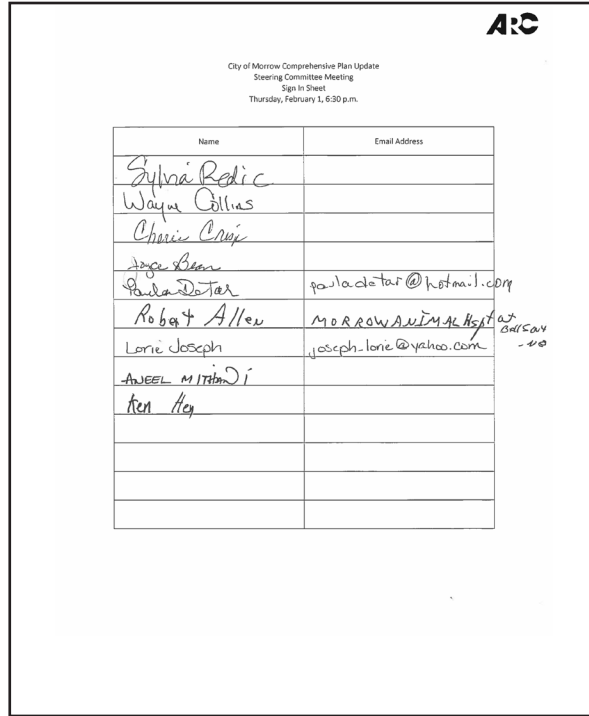 ARC
City of Morrow Comprehensive Plan Update
Steering Committee Meeting
Sign In Sheet
Thursday, February 1, 6:30 p.m.
Name Email Address
Sylvia Redic
Wayne Collins
Cherie
Joyce Bean
Paula DeTar pauladetar@hotmail.com
Robert Allen MORROWANIMALHspt at
Lorie Joseph joseph-lorie@yahoo.com
ANEEL MITHANI
Ken Hey